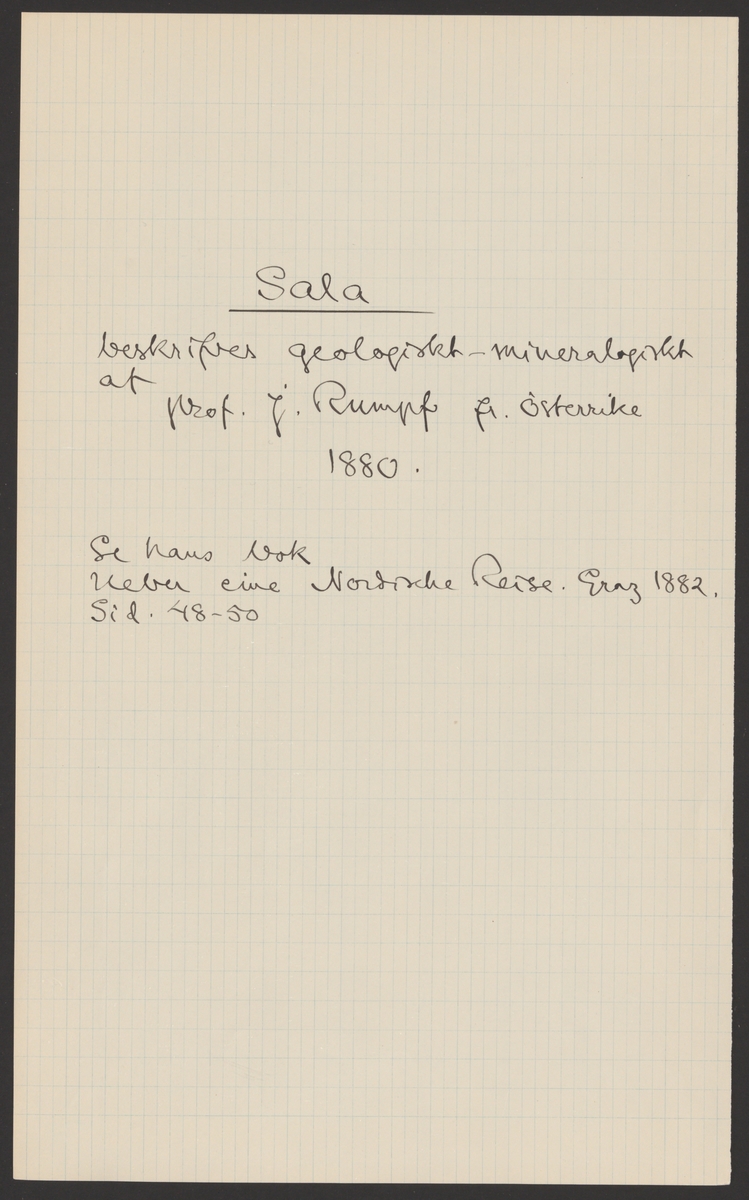 Sala
beskrifves geologiskt-mineralogiskt
af
prof. J. Rumpf fr. Österrike
1880.
Se hans bok
Ueber eine Nordische Reise. Graz 1882.
Sid. 48-50